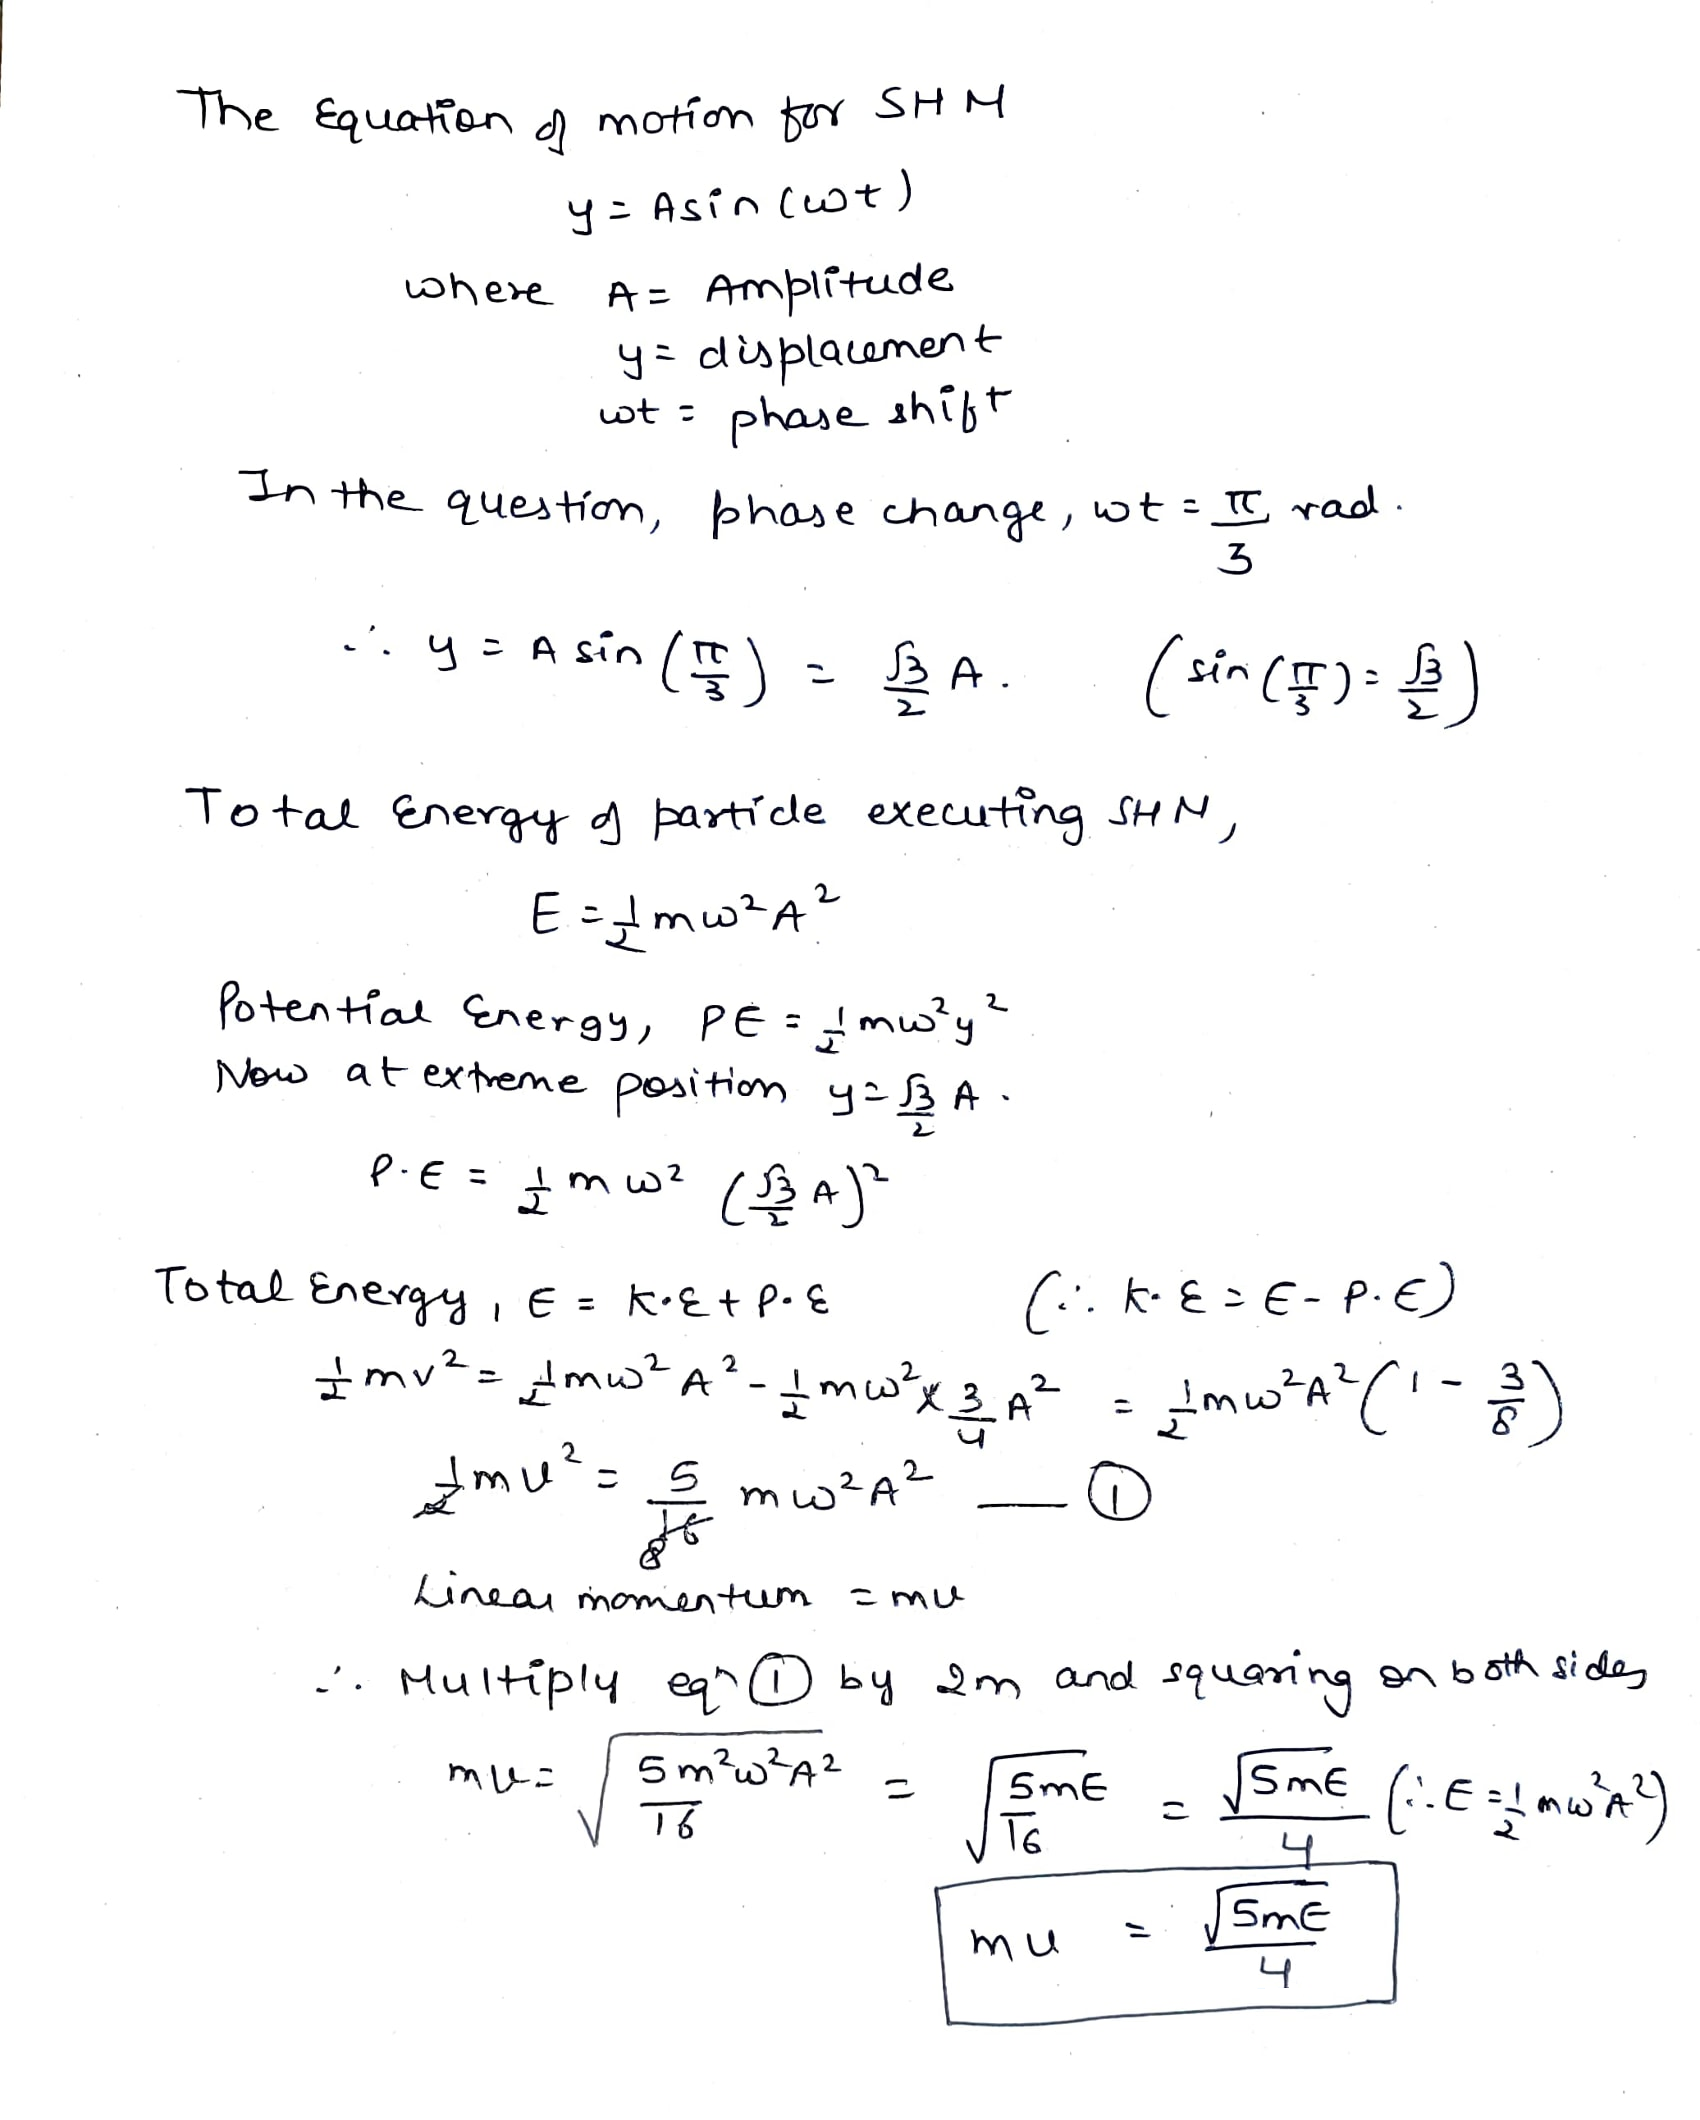 The Equation of motion for SHM
y = A sin (ωt)
where A = Amplitude
y = displacement
ωt = phase shift
In the question, phase change, ωt = π/3 rad.
∴ y = A sin (π/3) = √3/2 A. (sin (π/3) = √3/2)
Total Energy of particle executing SHM,
E = 1/2 mω²A²
Potential Energy, PE = 1/2 mω²y²
Now at extreme position y = √3/2 A.
P.E = 1/2 mω² (√3/2 A)²
Total Energy, E = K.E + P.E (∴ K.E = E - P.E)
1/2 mv² = 1/2 mω²A² - 1/2 mω² x 3/4 A² = 1/2 mω²A² (1 - 3/8)
1/2 mv² = 5/16 8 mω²A² — ①
Linear momentum = mv
∴ Multiply eqn ① by 2m and squaring on both sides
mv = √(5m²ω²A²/16) = √(5mE/16) = √5mE/4 (∵ E = 1/2 mω²A²)
mv = √5mE/4